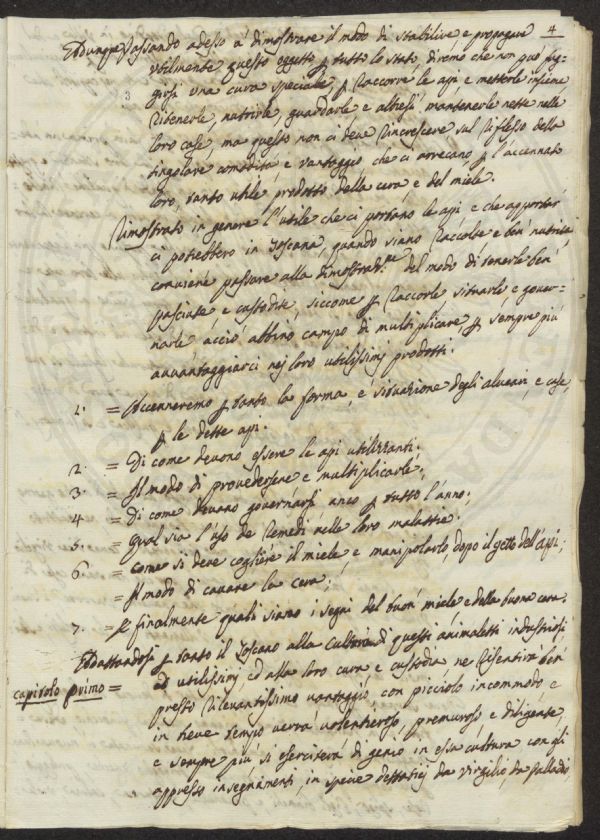 4
Et dunque Passando adesso á dimostrare il modo di stabilire, e propagare
utilmente questo oggetto p tutto lo stato, diremo che non può fug-
girsi una cura speciale, p raccorre le api e metterle insieme
ritenerle, nutrirle, guardarle e altresì, mantenerle nette nelle
loro case, ma questo non ci deve rincrescere sul riflesso della
singolare comodità, e vantaggio che ci arrecano p l'accennato
loro, tanto utile prodotto della cera, e del miele.
Dimostrato in genere l'utile che ci portano le api, e che apportar
ci potrebbero in Toscana, quando siano raccolte e ben nutrite,
conviene passare alla dimostraz.ne del modo di tenerle ben
pasciute e custodite, siccome p raccorle situarle e gover-
narle acciò abbino campo di multiplicare p sempre più
avvantaggiarci nej loro utilissimj prodotti.
1. = Accenneremo p tanto la forma, e situazione degli alveari, e case,
p le dette api.
2. = Di come devono essere le api utilizzanti.
3. = Il modo di provedersene e multiplicarle;
4 = Di come devano governarsi anco p tutto l'anno;
5. = Qual sia l'uso de remedi nelle loro malattie.
6. = come si deve cogliere il miele e manipolarlo, dopo il getto dell'api;
= Il modo di cavare la cera;
7. = E finalmente quali siano i segni del buon miele e della buona cera.
Adattandosi p tanto il Toscano alla Cultura di questi animaletti industriosi
ed utilissimj ed alla loro cura e custodia ne risentirà ben
capitolo primo = presto rilevantissimo vantaggio con picciolo incommodo e
in breve tempo verrà volenteroso, premuroso e diligente,
e sempre più si eserciterà di genio in essa cultura con gli
appresso insegnamenti, in specie dettatij da Virgilio, da Palladio